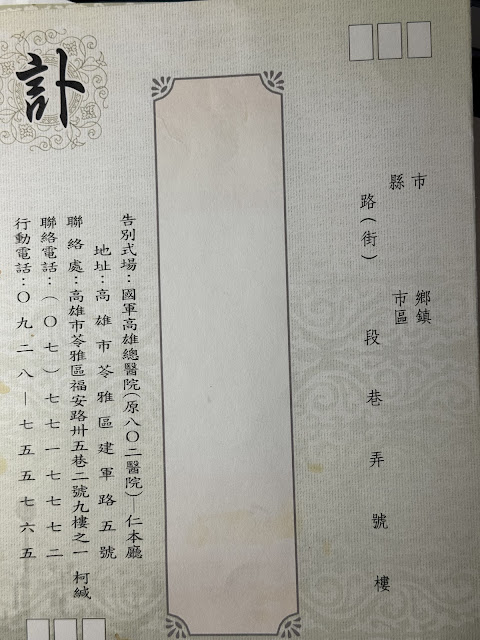 縣市 鄉鎮市區
路(街) 段 巷 弄 號 樓
訃
告別式場：國軍高雄總醫院(原八〇二醫院) 仁本廳
地址：高雄市苓雅區建軍路五號
聯絡處：高雄市苓雅區福安路卅五巷二號九樓之一 柯緘
聯絡電話：(〇七)七七一七七七二
行動電話：〇九二八—七五五七六五